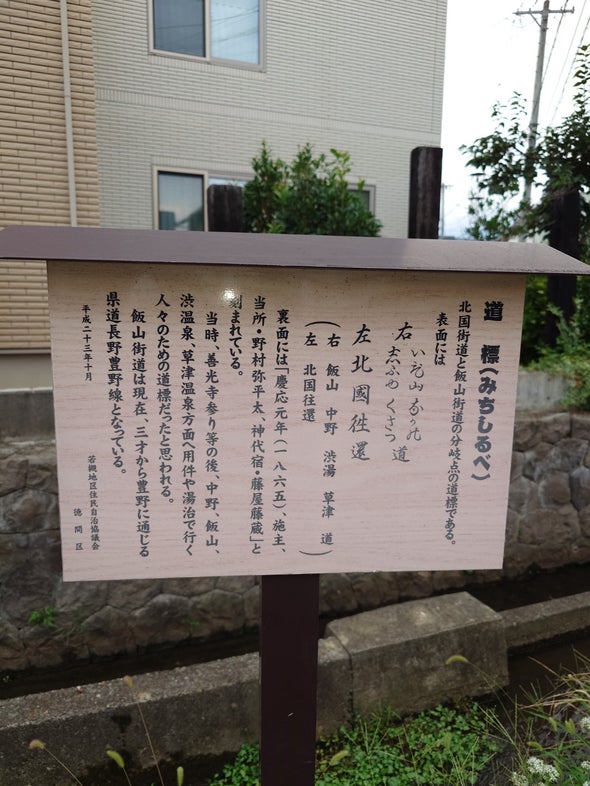 道標(みちしるべ)
北国街道と飯山街道の分岐点の道標である。
表面には
右 いい山 なか乃 道
志ぶゆ くさつ
左 北國往還
(右 飯山 中野 渋湯 草津 道)
(左 北国往還)
裏面には「慶応元年(一八六五)、施主、
当所・野村弥平太、神代宿・藤屋藤蔵」と
刻まれている。
当時、善光寺参り等の後、中野、飯山、
渋温泉、草津温泉方面へ用件や湯治で行く
人々のための道標だったと思われる。
飯山街道は現在、三才から豊野に通じる
県道長野豊野線となっている。
平成二十三年十月
若槻地区住民自治協議会
徳間区